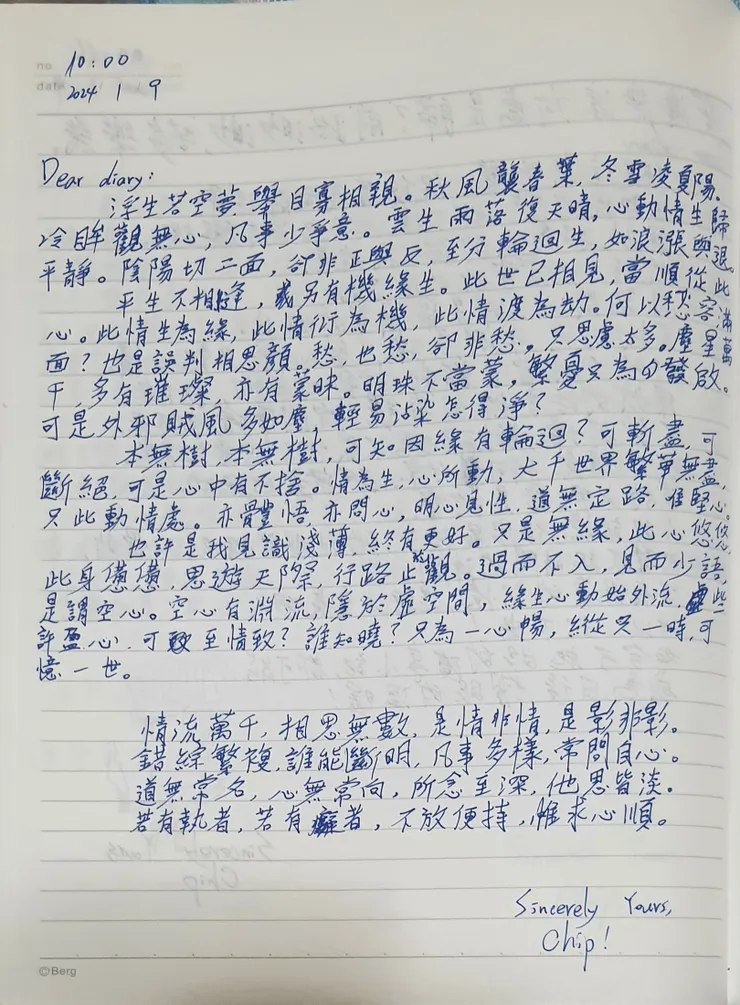 no. 10:00
date 2024 1 / 9
Dear diary:
浮生若空夢,舉目寡相親。秋風襲春葉,冬雪凌夏陽。
冷眸觀無心,凡事少爭意。雲生雨落復天晴,心動情生歸
平靜。陰陽切二面,卻非正與反,至分輪迴生,如浪漲與退。
平生不相逢,或另有機緣生。此世已相見,當順從此
心。此情生為緣,此情衍為機,此情渡為劫。何以愁容滿
面?也是誤判相思顏。愁,也愁,卻非愁,只思慮太多。塵星萬
千,多有璀璨,亦有蒙昧。明珠不當蒙,繁憂只為發啟。
可是外邪賊風多如塵,輕易沾染怎得淨?
本無樹,本無樹,可知因緣有輪迴?可斬盡,可
斷絕,可是心中有不捨。情為生,心所動,大千世界繁華無盡,
只此動情處。亦體悟,亦問心,明心見性,道無定路,唯堅心。
也許是我見識淺薄,終有更好。只是無緣,此心悠悠,
此身憊憊,思遊天際,行路止觀。過而不入,見而少語,
是謂空心。空心有淵流,隱於虛空間,緣生心動始外流,些
許盈心,可致至情致?誰知曉?只為一心暢,縱只一時,可
憶一世。
情流萬千,相思無數,是情非情,是影非影。
錯綜繁複,誰能斷明,凡事多樣,常問自心。
道無常名,心無常向,所念至深,他思皆淡。
若有執者,若有癡者,不放便持,惟求心順。
Sincerely Yours,
Chip!
©Berg